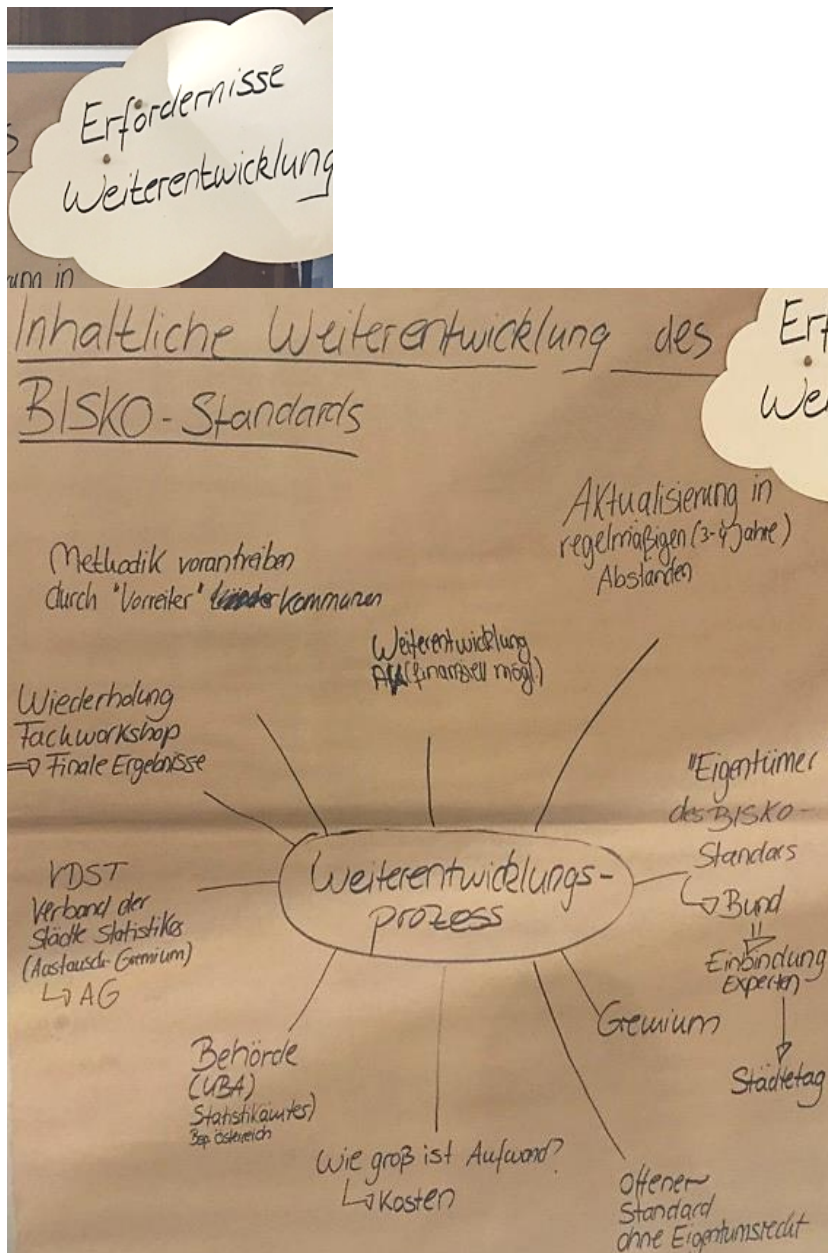 Erfordernisse
Weiterentwicklung
rung in
Inhaltliche Weiterentwicklung des
BISKO-Standards
Erf
Wei
Aktualisierung in
regelmäßigen (3-4 Jahre)
Abständen
Methodik vorantreiben
durch "Vorreiter" Kommunen
Weiterentwicklung
(finanziell mögl.)
Wiederholung
Fachworkshop
⇒ Finale Ergebnisse
"Eigentümer
des BISKO-
Standars
↳ Bund
⇓
Einbindung
Experten
↓
Städtetag
VDST
Verband der
Städte Statistiker
(Austausch-Gremium)
↳ AG
Weiterentwicklungs-
prozess
Gremium
Behörde
(UBA)
Statistikämter)
Bsp. Österreich
Wie groß ist Aufwand?
↳ Kosten
Offener
Standard
ohne Eigentumsrecht